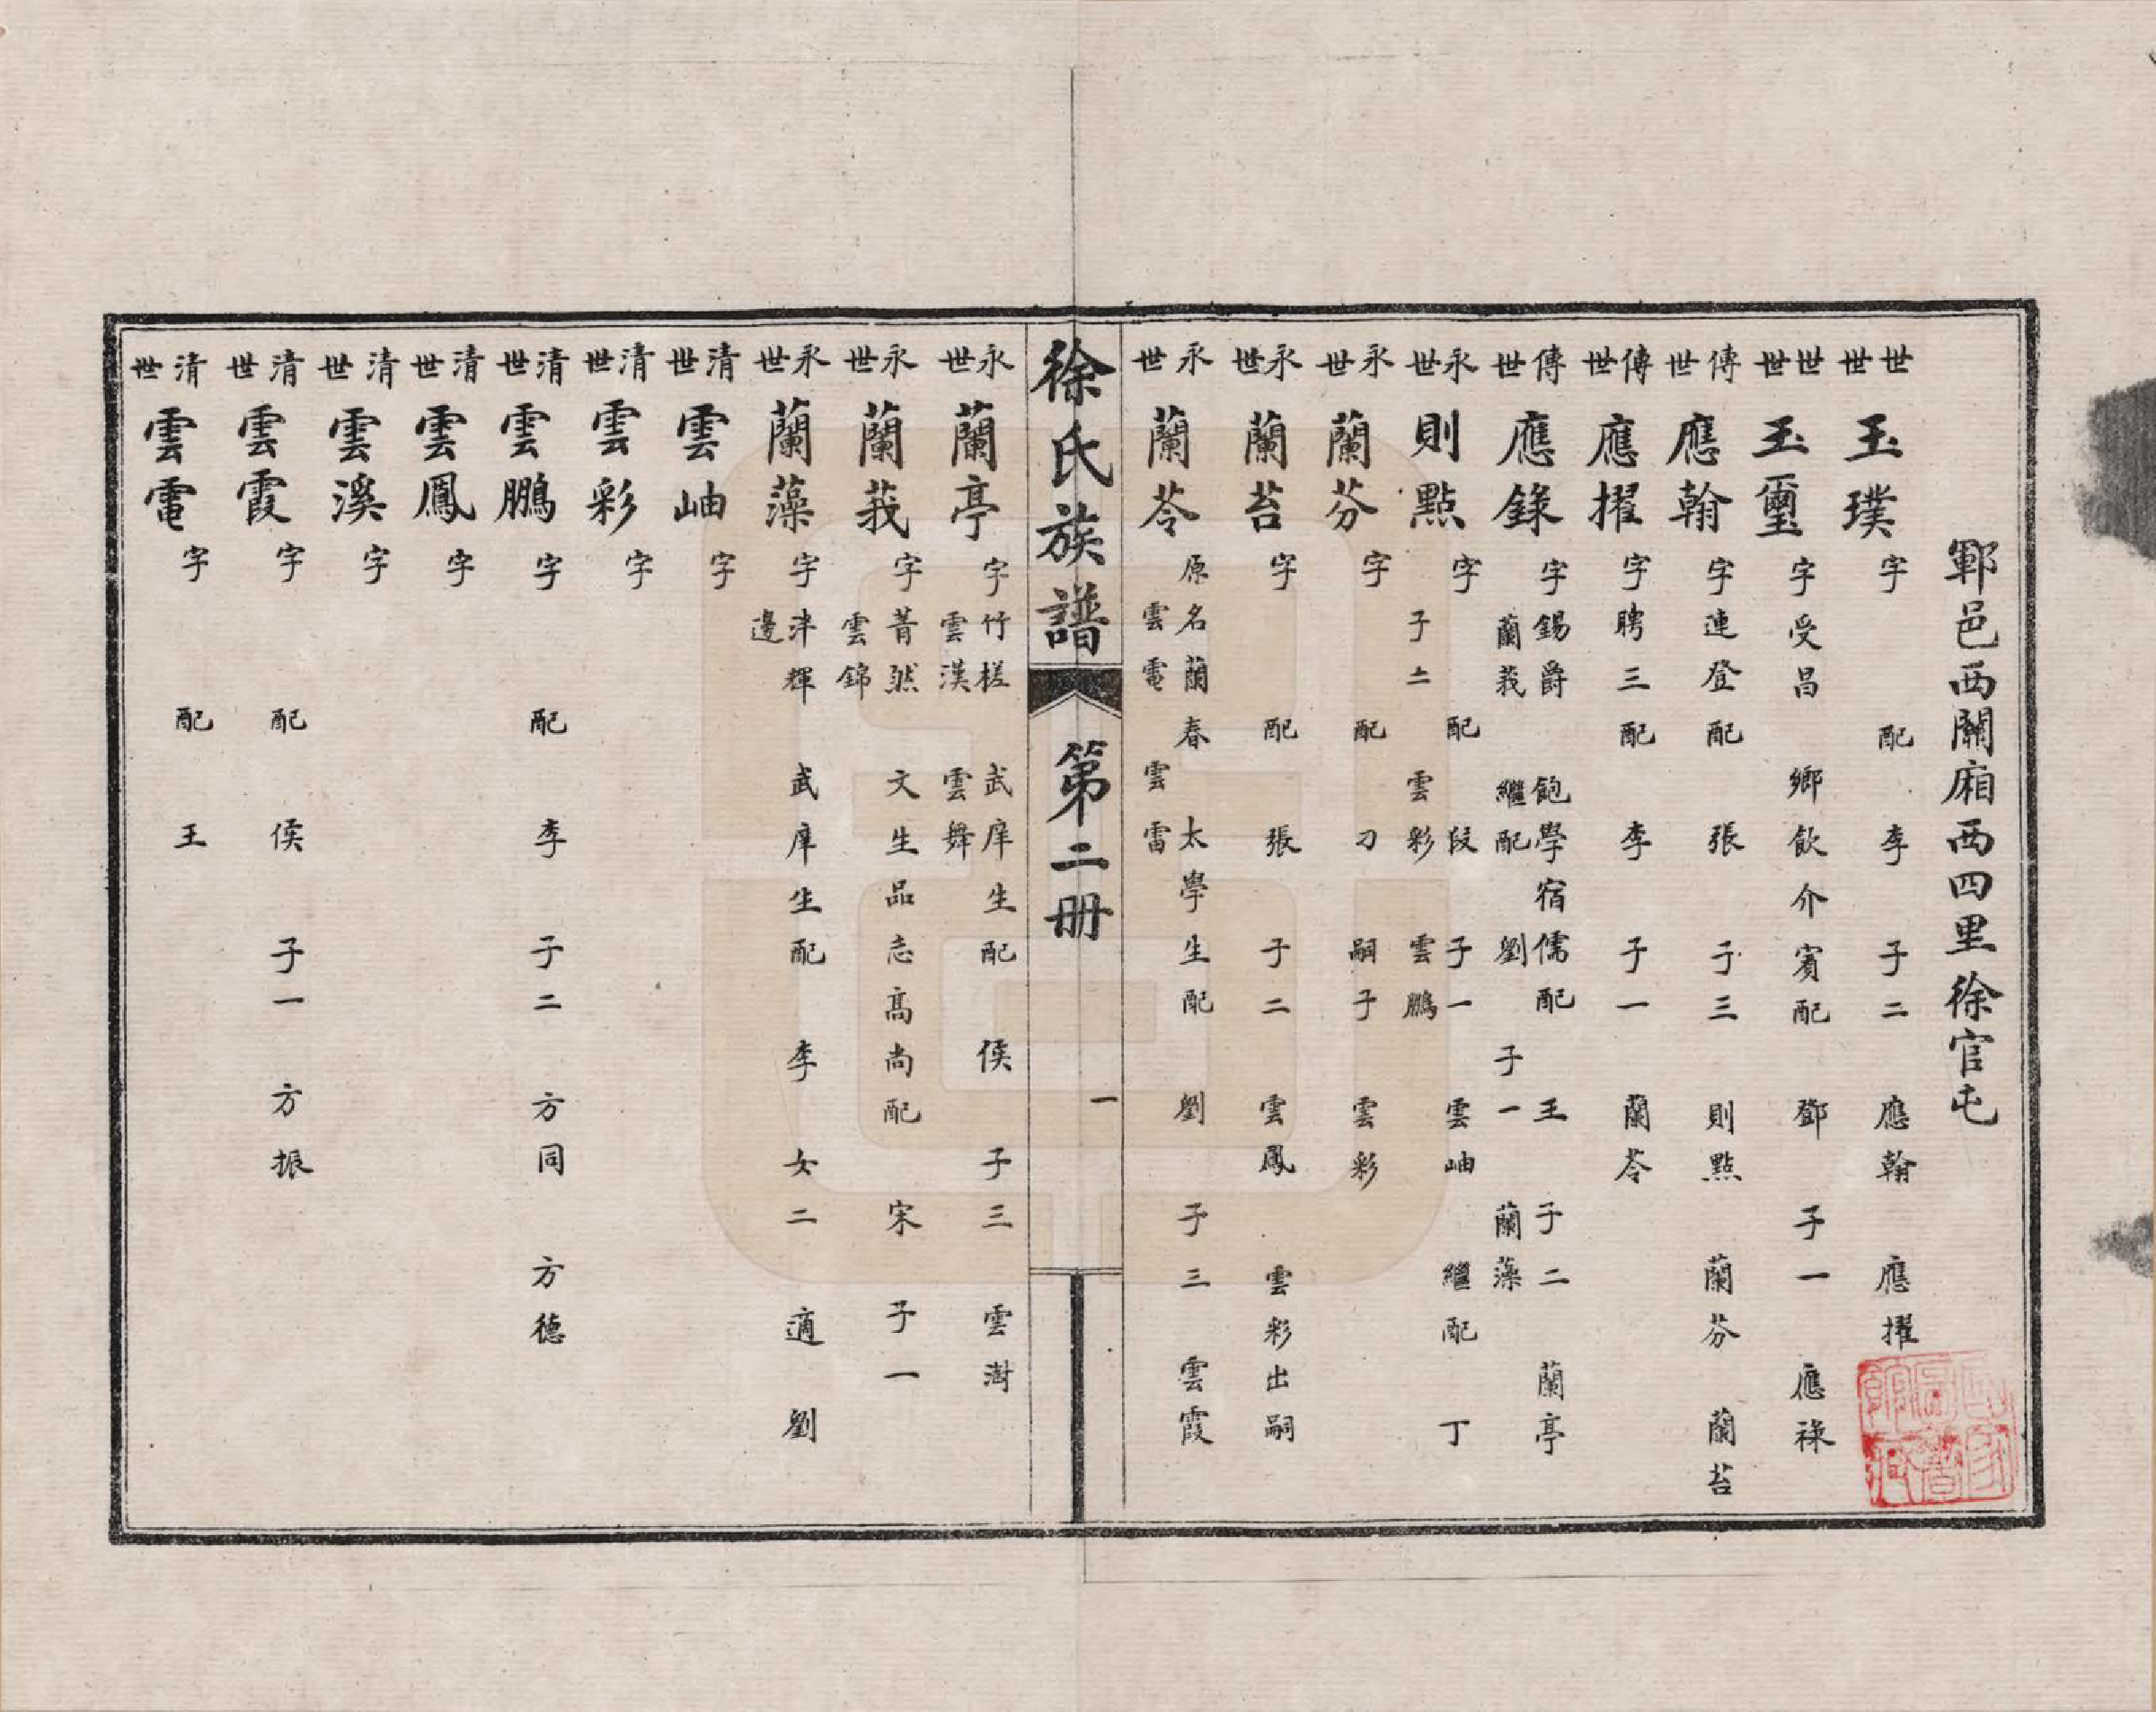 鄆邑西關廂西四里徐官屯
世世 玉璞 字 配 李 子二 應翰 應擢
世世 玉璽 字受昌 鄉飲介賓配 鄧 子一 應祿
傳世 應翰 字連登配 張 子三 則點 蘭芬 蘭苔
傳世 應擢 字聘三配 李 子一 蘭苓
傳世 應錄 字錫爵 飽學宿儒配 王 子二 蘭亭
蘭莪 繼配 劉 子一 蘭藻
永世 則點 字 配 段 子一 雲岫 繼配 丁
子二 雲彩 雲鵬
永世 蘭芬 字 配 刁 嗣子 雲彩
永世 蘭苔 字 配 張 子二 雲鳳 雲彩出嗣
永世 蘭苓 原名蘭春 太學生配 劉 子三 雲霞
雲電 雲雷
徐氏族譜 第二册 一
永世 蘭亭 字竹槎 武庠生配 侯 子三 雲澍
雲漢 雲舞
永世 蘭莪 字菁然 文生品志高尚配 宋 子一
雲錦
永世 蘭藻 字泮輝 武庠生配 李 女二 適 劉
邊
清世 雲岫 字
清世 雲彩 字
清世 雲鵬 字 配 李 子二 方同 方德
清世 雲鳳 字
清世 雲溪 字
清世 雲霞 字 配 侯 子一 方振
清世 雲電 字 配 王